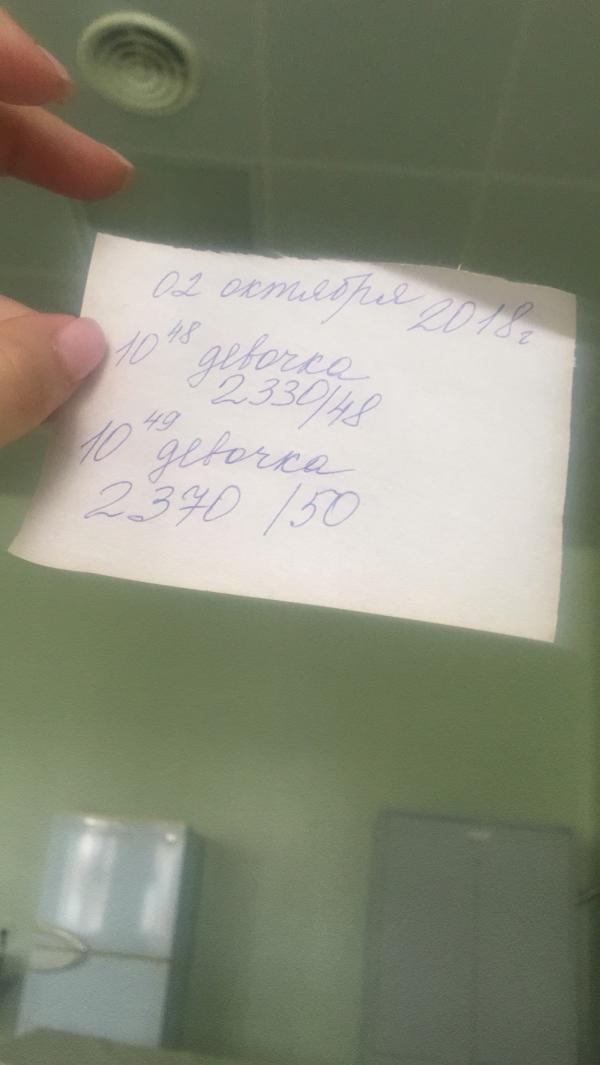 02 октября 2018г
10⁴⁸ девочка
2330/48
10⁴⁹ девочка
2370 /50